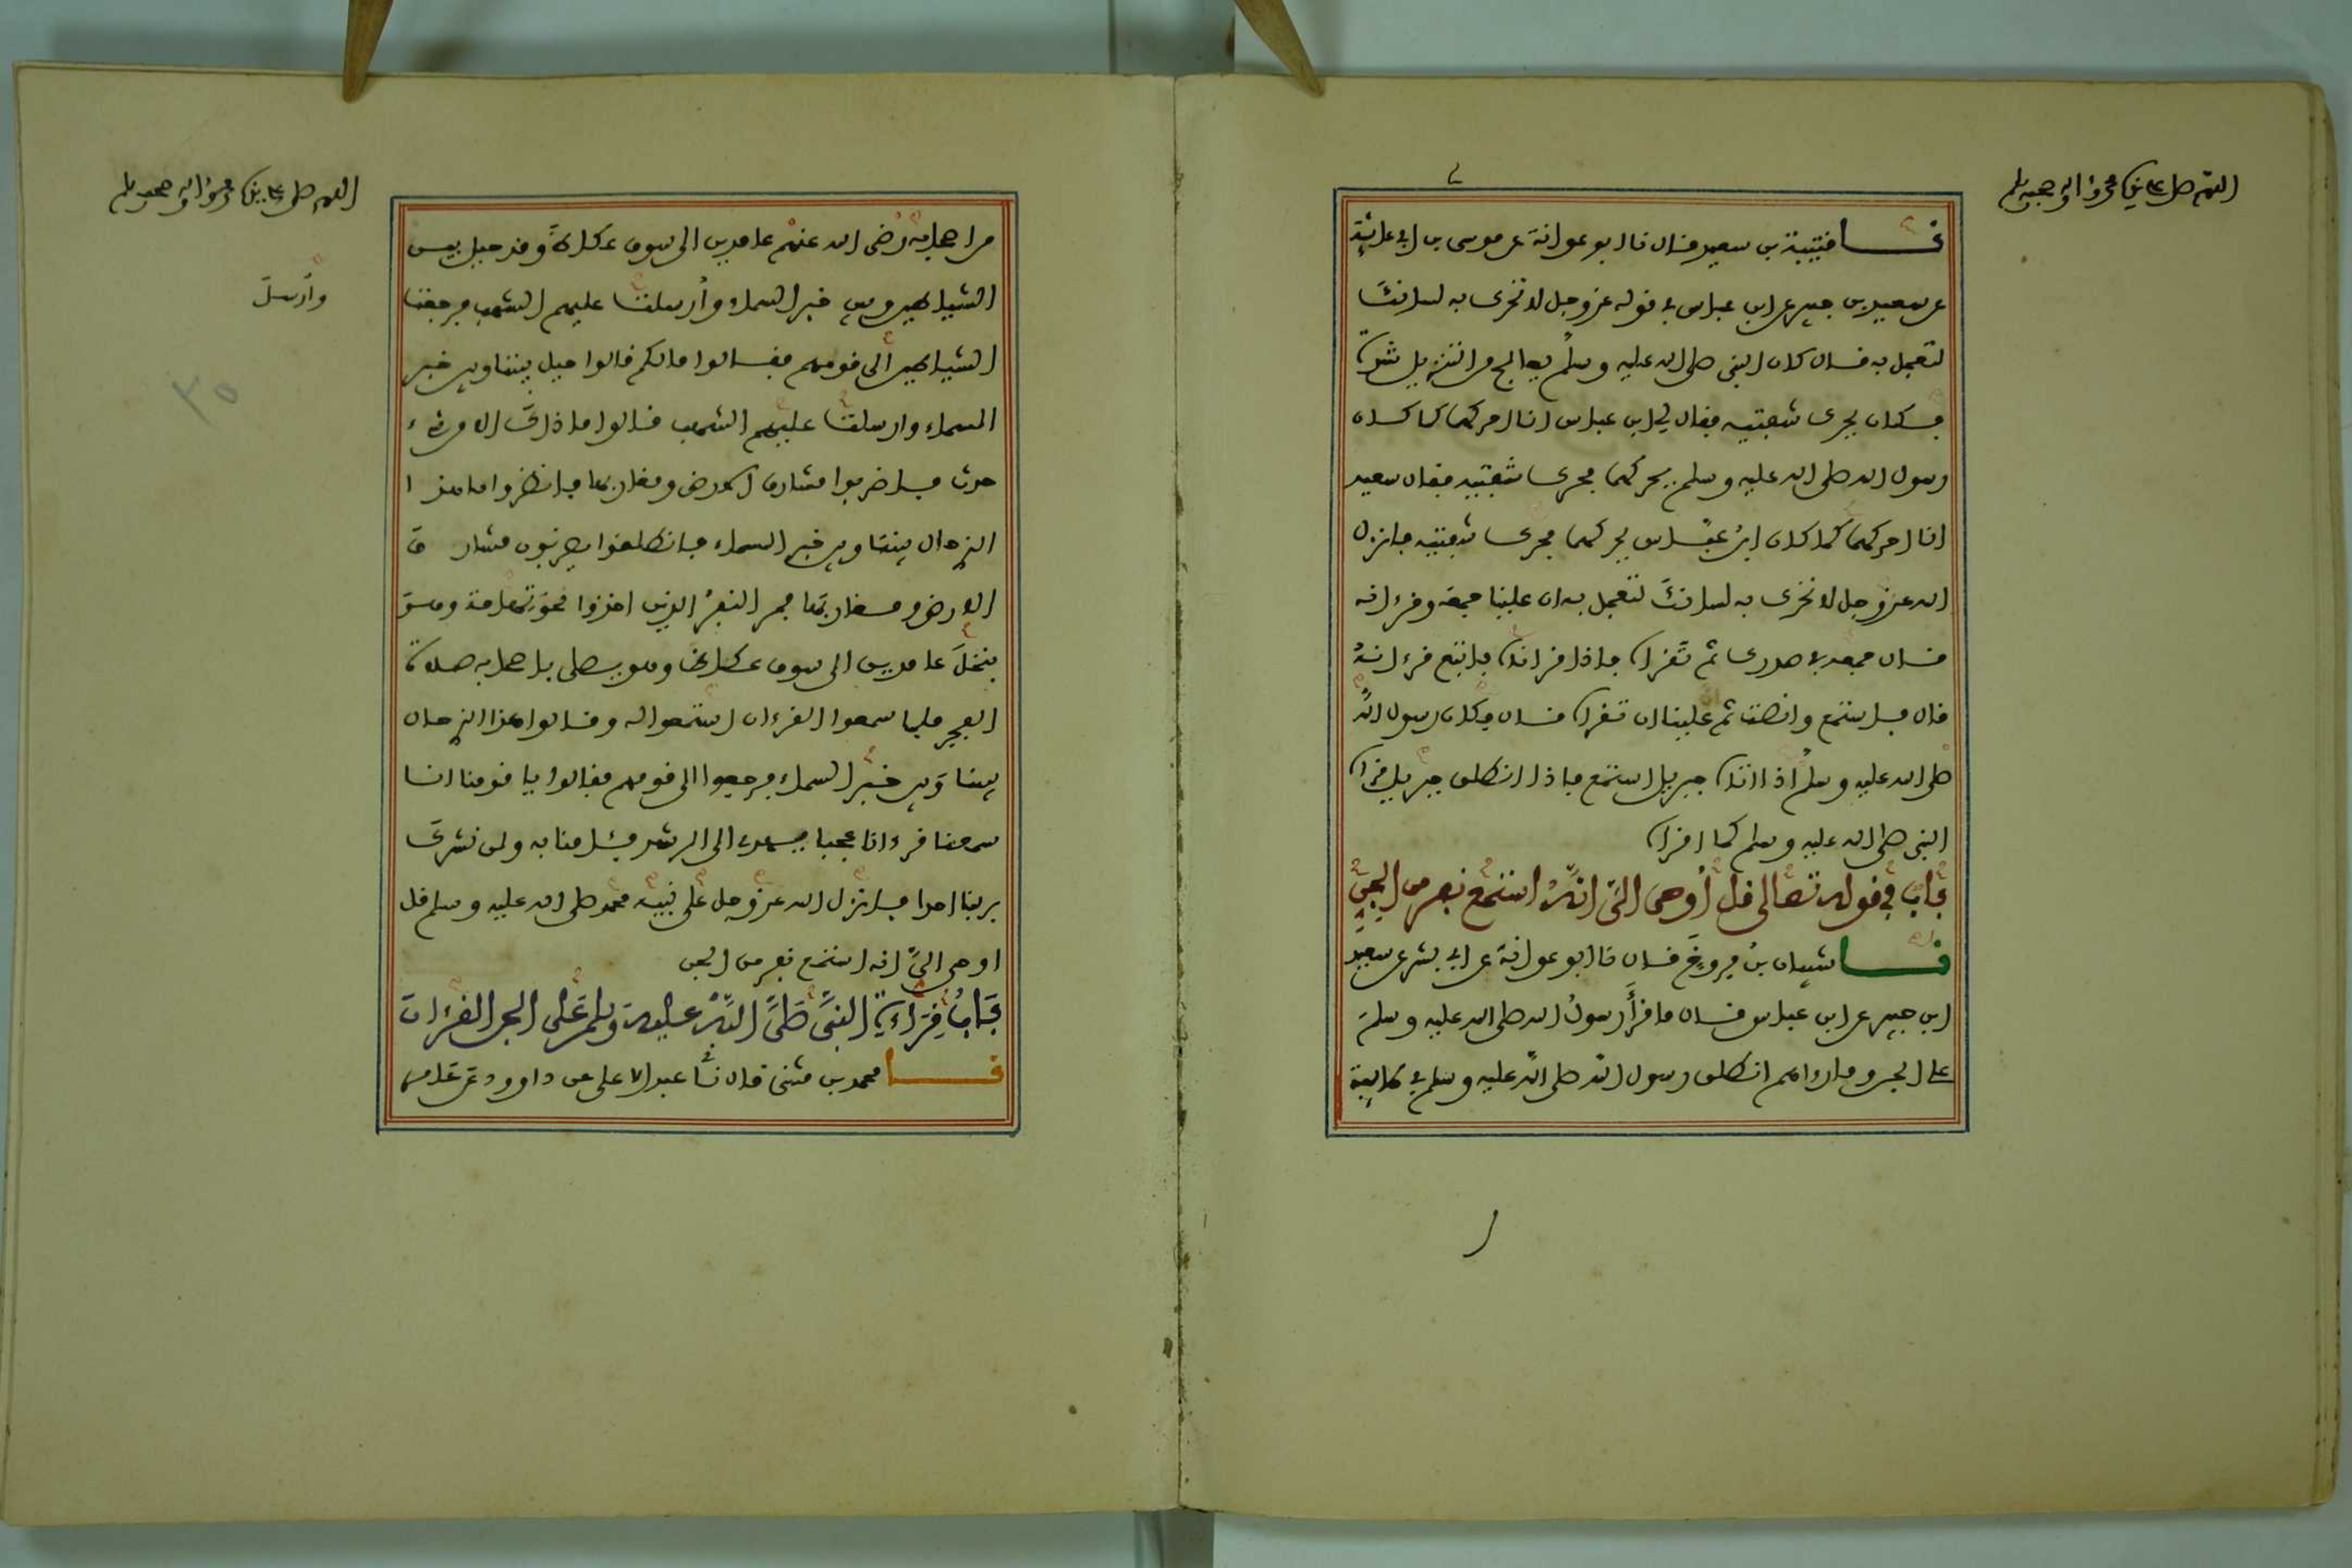 اللهم صل على نبيك محمد واله وصحبه وسلم
نا قتيبة بن سعيد قال نا ابو عوانة عن موسى بن ابي عائشة
عن سعيد بن جبير عن ابن عباس في قوله عز وجل لا تحرك به لسانك
لتعجل به قال كان النبي صلى الله عليه وسلم يعالج من التنزيل شدة
فكان يحرك شفتيه فقال لي ابن عباس انا احركهما كما كان
رسول الله صلى الله عليه وسلم يحركهما فحرك شفتيه فقال سعيد
انا احركهما كما كان ابن عباس يحركهما فحرك شفتيه فانزل
الله عز وجل لا تحرك به لسانك لتعجل به ان علينا جمعه وقرءانه
قال جمعه في صدرك ثم تقرأه فاذا قرأناه فاتبع قرءانه
قال فاستمع وانصت ثم علينا ان تقرأه قال فكان رسول الله
صلى الله عليه وسلم اذا اتاه جبريل استمع فاذا انطلق جبريل قرأه
النبي صلى الله عليه وسلم كما اقرأه
باب في قوله تعالى قل أوحى الي انه استمع نفر من الجن
نا شيبان بن فروخ قال نا ابو عوانة عن ابي بشر عن سعيد
ابن جبير عن ابن عباس قال ما قرأ رسول الله صلى الله عليه وسلم
على الجن وما رءاهم انطلق رسول الله صلى الله عليه وسلم في طايفة
اللهم صل على نبيك محمد واله وصحبه وسلم
من اصحابه رضى الله عنهم عامدين الى سوق عكاظ وقد حيل بين
الشياطين وبين خبر السماء وأرسلت عليهم الشهب فرجعت
وأرسل
الشياطين الى قومهم فقالوا مالكم قالوا حيل بيننا وبين خبر
السماء وارسلت علينا الشهب قالوا ما ذاك الا من شيء
حدث فاضربوا مشارق الارض ومغاربها فانظروا ما هذا
الذي حال بيننا وبين خبر السماء فانطلقوا يضربون مشارق
الارض ومغاربها فمر النفر الذين اخذوا نحو تهامة وهو
بنخل عامدين الى سوق عكاظ وهو يصلى باصحابه صلاة
الفجر فلما سمعوا القرءان استمعوا له وقالوا هذا الذي حال
بيننا وبين خبر السماء فرجعوا الى قومهم فقالوا يا قومنا انا
سمعنا قرءانا عجبا يهدي الى الرشد فئامنا به ولن نشرك
بربنا احدا فانزل الله عز وجل على نبيه محمد صلى الله عليه وسلم قل
اوحى الي انه استمع نفر من الجن
باب قراءة النبي صلى الله عليه وسلم على الجن القرءان
نا محمد بن مثنى قال نا عبد الاعلى عن داوود عن عامر
٣٥